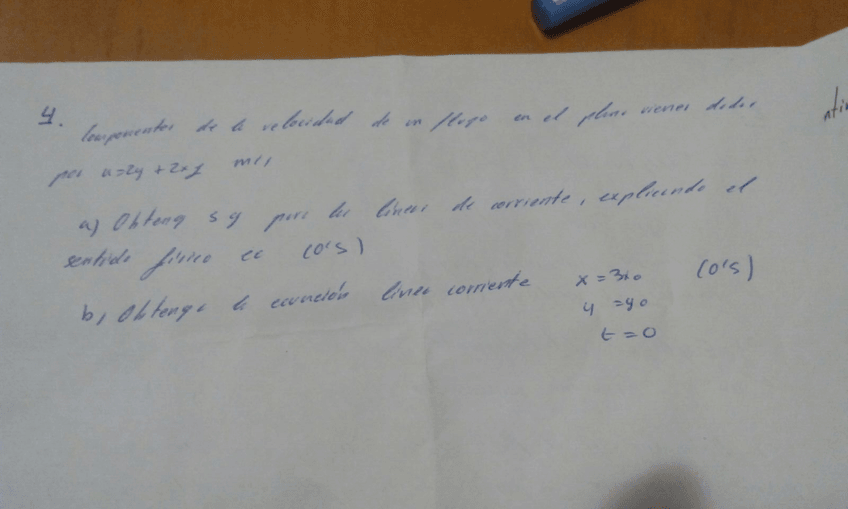 4. Componentes de la velocidad de un flujo en el plano vienen dados
por u=2y + 2xy m/s
a) Obteng s y para las líneas de corriente, explicando el
sentido físico cc (0'5)
b) Obtenga la ecuación línea corriente x = 3x0 (0'5)
y = y0
t = 0